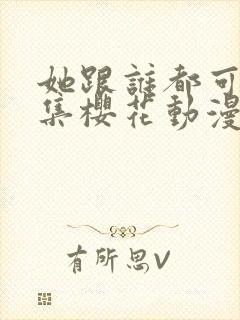 她跟誰都可
集櫻花動漫
有所思V